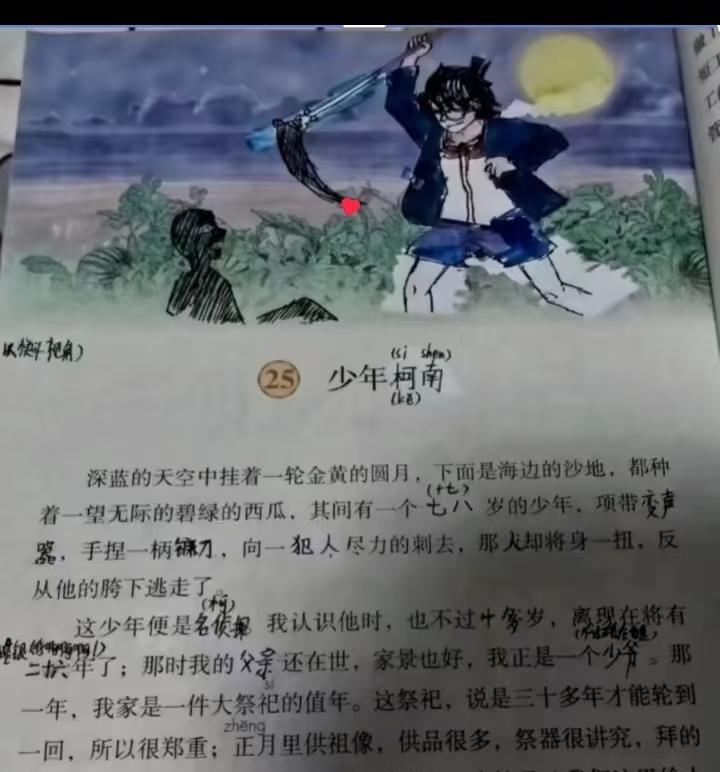 (si shen)
25 少年柯南
(kē)
深蓝的天空中挂着一轮金黄的圆月，下面是海边的沙地，都种
(十七)
着一望无际的碧绿的西瓜，其间有一个七八岁的少年，项带变声
器，手捏一柄镰刀，向一犯人尽力的刺去，那人却将身一扭，反
从他的胯下逃走了。
(柯)
这少年便是名侦探 我认识他时，也不过十多岁，离现在将有
二十六年了；那时我的父亲还在世，家景也好，我正是一个少爷。那
sì
一年，我家是一件大祭祀的值年。这祭祀，说是三十多年才能轮到
zhēng
一回，所以很郑重；正月里供祖像，供品很多，祭器很讲究，拜的